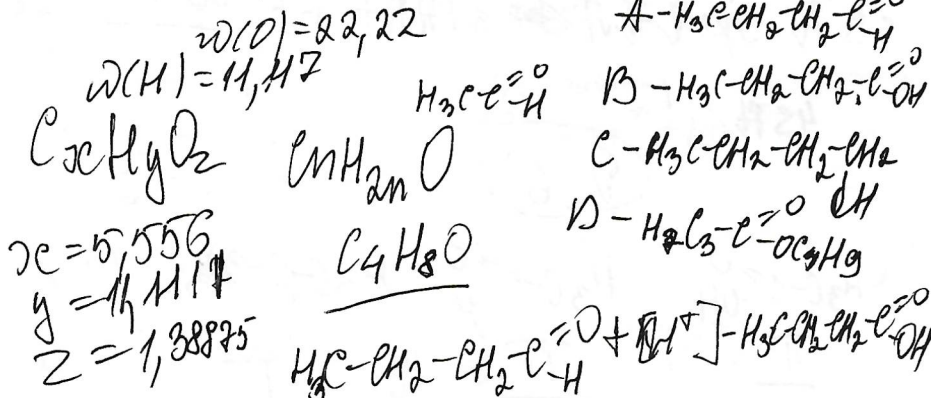 w(O)=22,22
w(H)=11,117
CxHyOz
x=5,556
y=11,1117
z=1,38875
H3C-C=O-H
CnH2nO
C4H8O
A-H3C-CH2-CH2-C=O-H
B-H3C-CH2-CH2-C=O-OH
C-H3C-CH2-CH2-CH2
OH
D-H7C3-C=O-OC4H9
H3C-CH2-CH2-C=O-H+[H+]-H3C-CH2CH2-C=O-OH